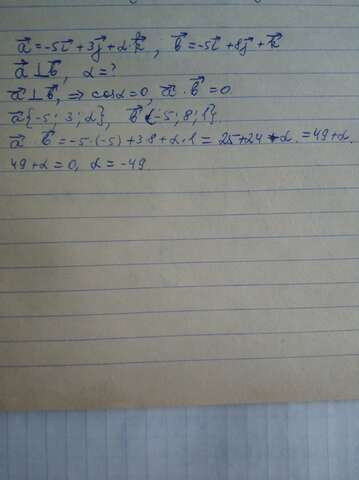 a⃗ = -5i⃗ + 3j⃗ + α·k⃗ ; b⃗ = -5i⃗ + 8j⃗ + k⃗
a⃗ ⊥ b⃗, α = ?
a⃗ ⊥ b⃗, ⇒ cosα = 0, a⃗ · b⃗ = 0
a⃗ {-5; 3; α}, b⃗ {-5; 8; 1}.
a⃗ · b⃗ = -5·(-5) + 3·8 + α·1 = 25 + 24 + α = 49 + α.
49 + α = 0, α = -49